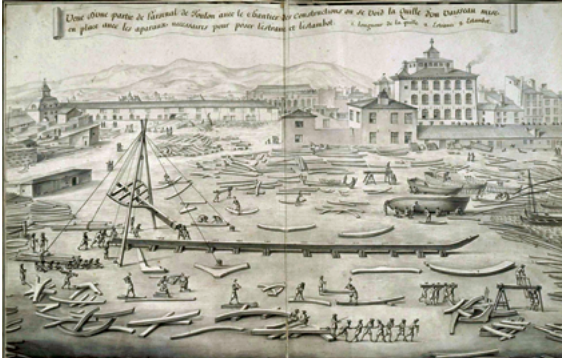 Veue d'une partie de l'arsenal de Toulon avec le chantier des Constructions ou se Void la Quille d'un Vaisseau mise
en place avec les aparaux necessaires pour poser lestrave et lestambot. 1. longueur de la quille 2. Lestrave 3. Lestambot.